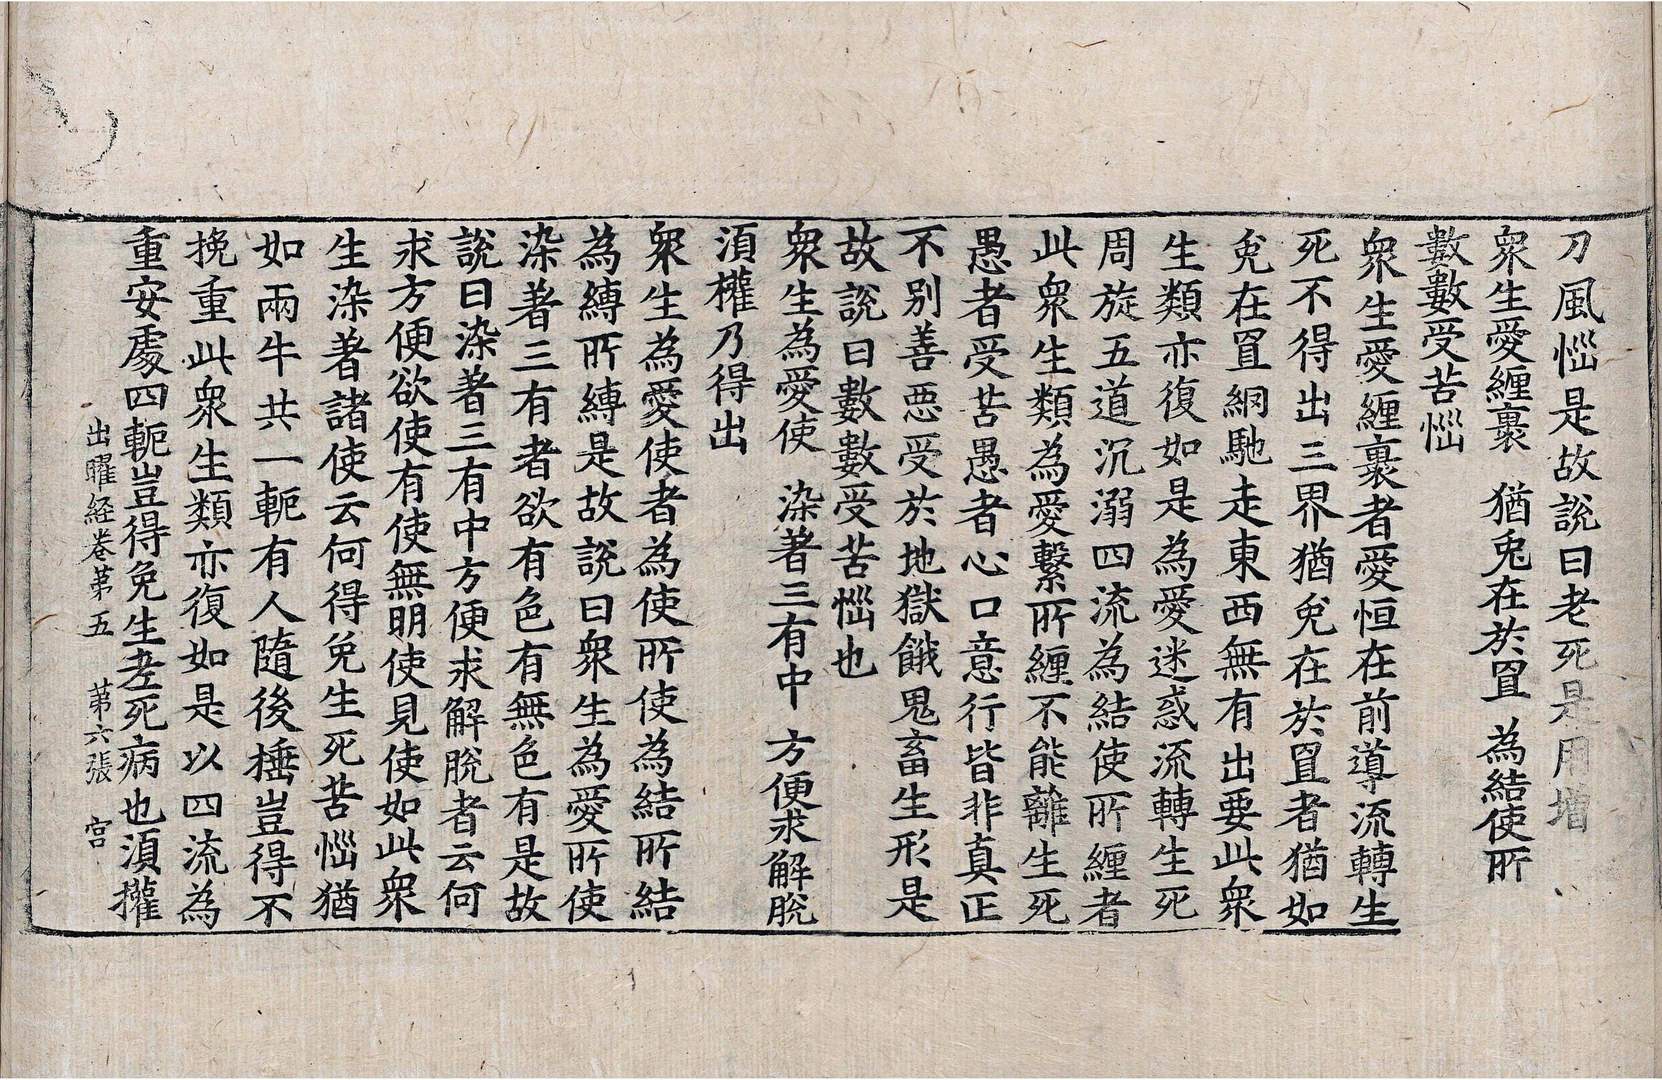 刀風惱是故說曰老死是用增
衆生愛纏裹　猶兔在於罝　為結使所
數數受苦惱
衆生愛纏裹者愛恒在前導流轉生
死不得出三界猶兔在於罝者猶如
兔在罝網馳走東西無有出要此衆
生類亦復如是為愛迷惑流轉生死
周旋五道沉溺四流為結使所纏者
此衆生類為愛繫所纏不能離生死
愚者受苦愚者心口意行皆非真正
不別善惡受於地獄餓鬼畜生形是
故說曰數數受苦惱也
衆生為愛使　染著三有中　方便求解脫
湏權乃得出
衆生為愛使者為使所使為結所結
為縛所縛是故說曰衆生為愛所使
染著三有者欲有色有無色有是故
說曰染著三有中方便求解脫者云何
求方便欲使有使無明使見使如此衆
生染著諸使云何得免生死苦惱猶
如兩牛共一軛有人隨後捶豈得不
挽重此衆生類亦復如是以四流為
重安處四軛豈得免生老死病也湏權
出曜経卷第五　第六張　宫